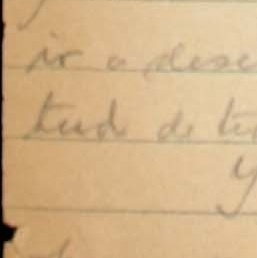 ir a dese
tud de tu
y